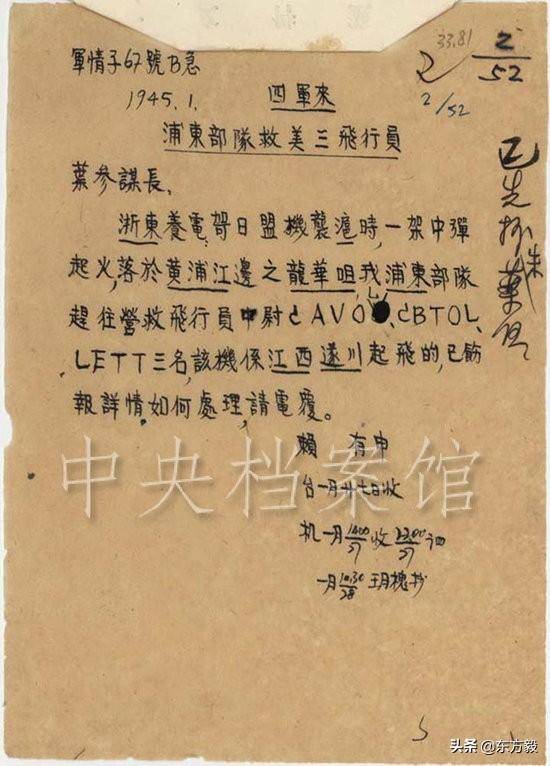 33.81
2
2/52
2/52
軍情子67號B急
1945.1. 四軍來
浦東部隊救美三飛行員
葉參謀長、
浙東養電哿日盟機襲滬時,一架中彈
起火,落於黄浦江邊之龍華咀,我浦東部隊
趕往營救飛行員中尉CAVO、CBTOL、
LETT三名,該機係江西遂川起飛的,已飭
報詳情,如何處理,請電覆。
賴 有申
台一月廿七日收
机一月1400/27收2200/27
一月10.30/28 抄
已先抄
中央档案馆
头条@东方毅